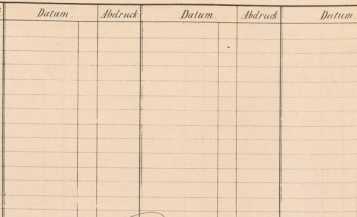 Datum Abdruck Datum Abdruck Datum